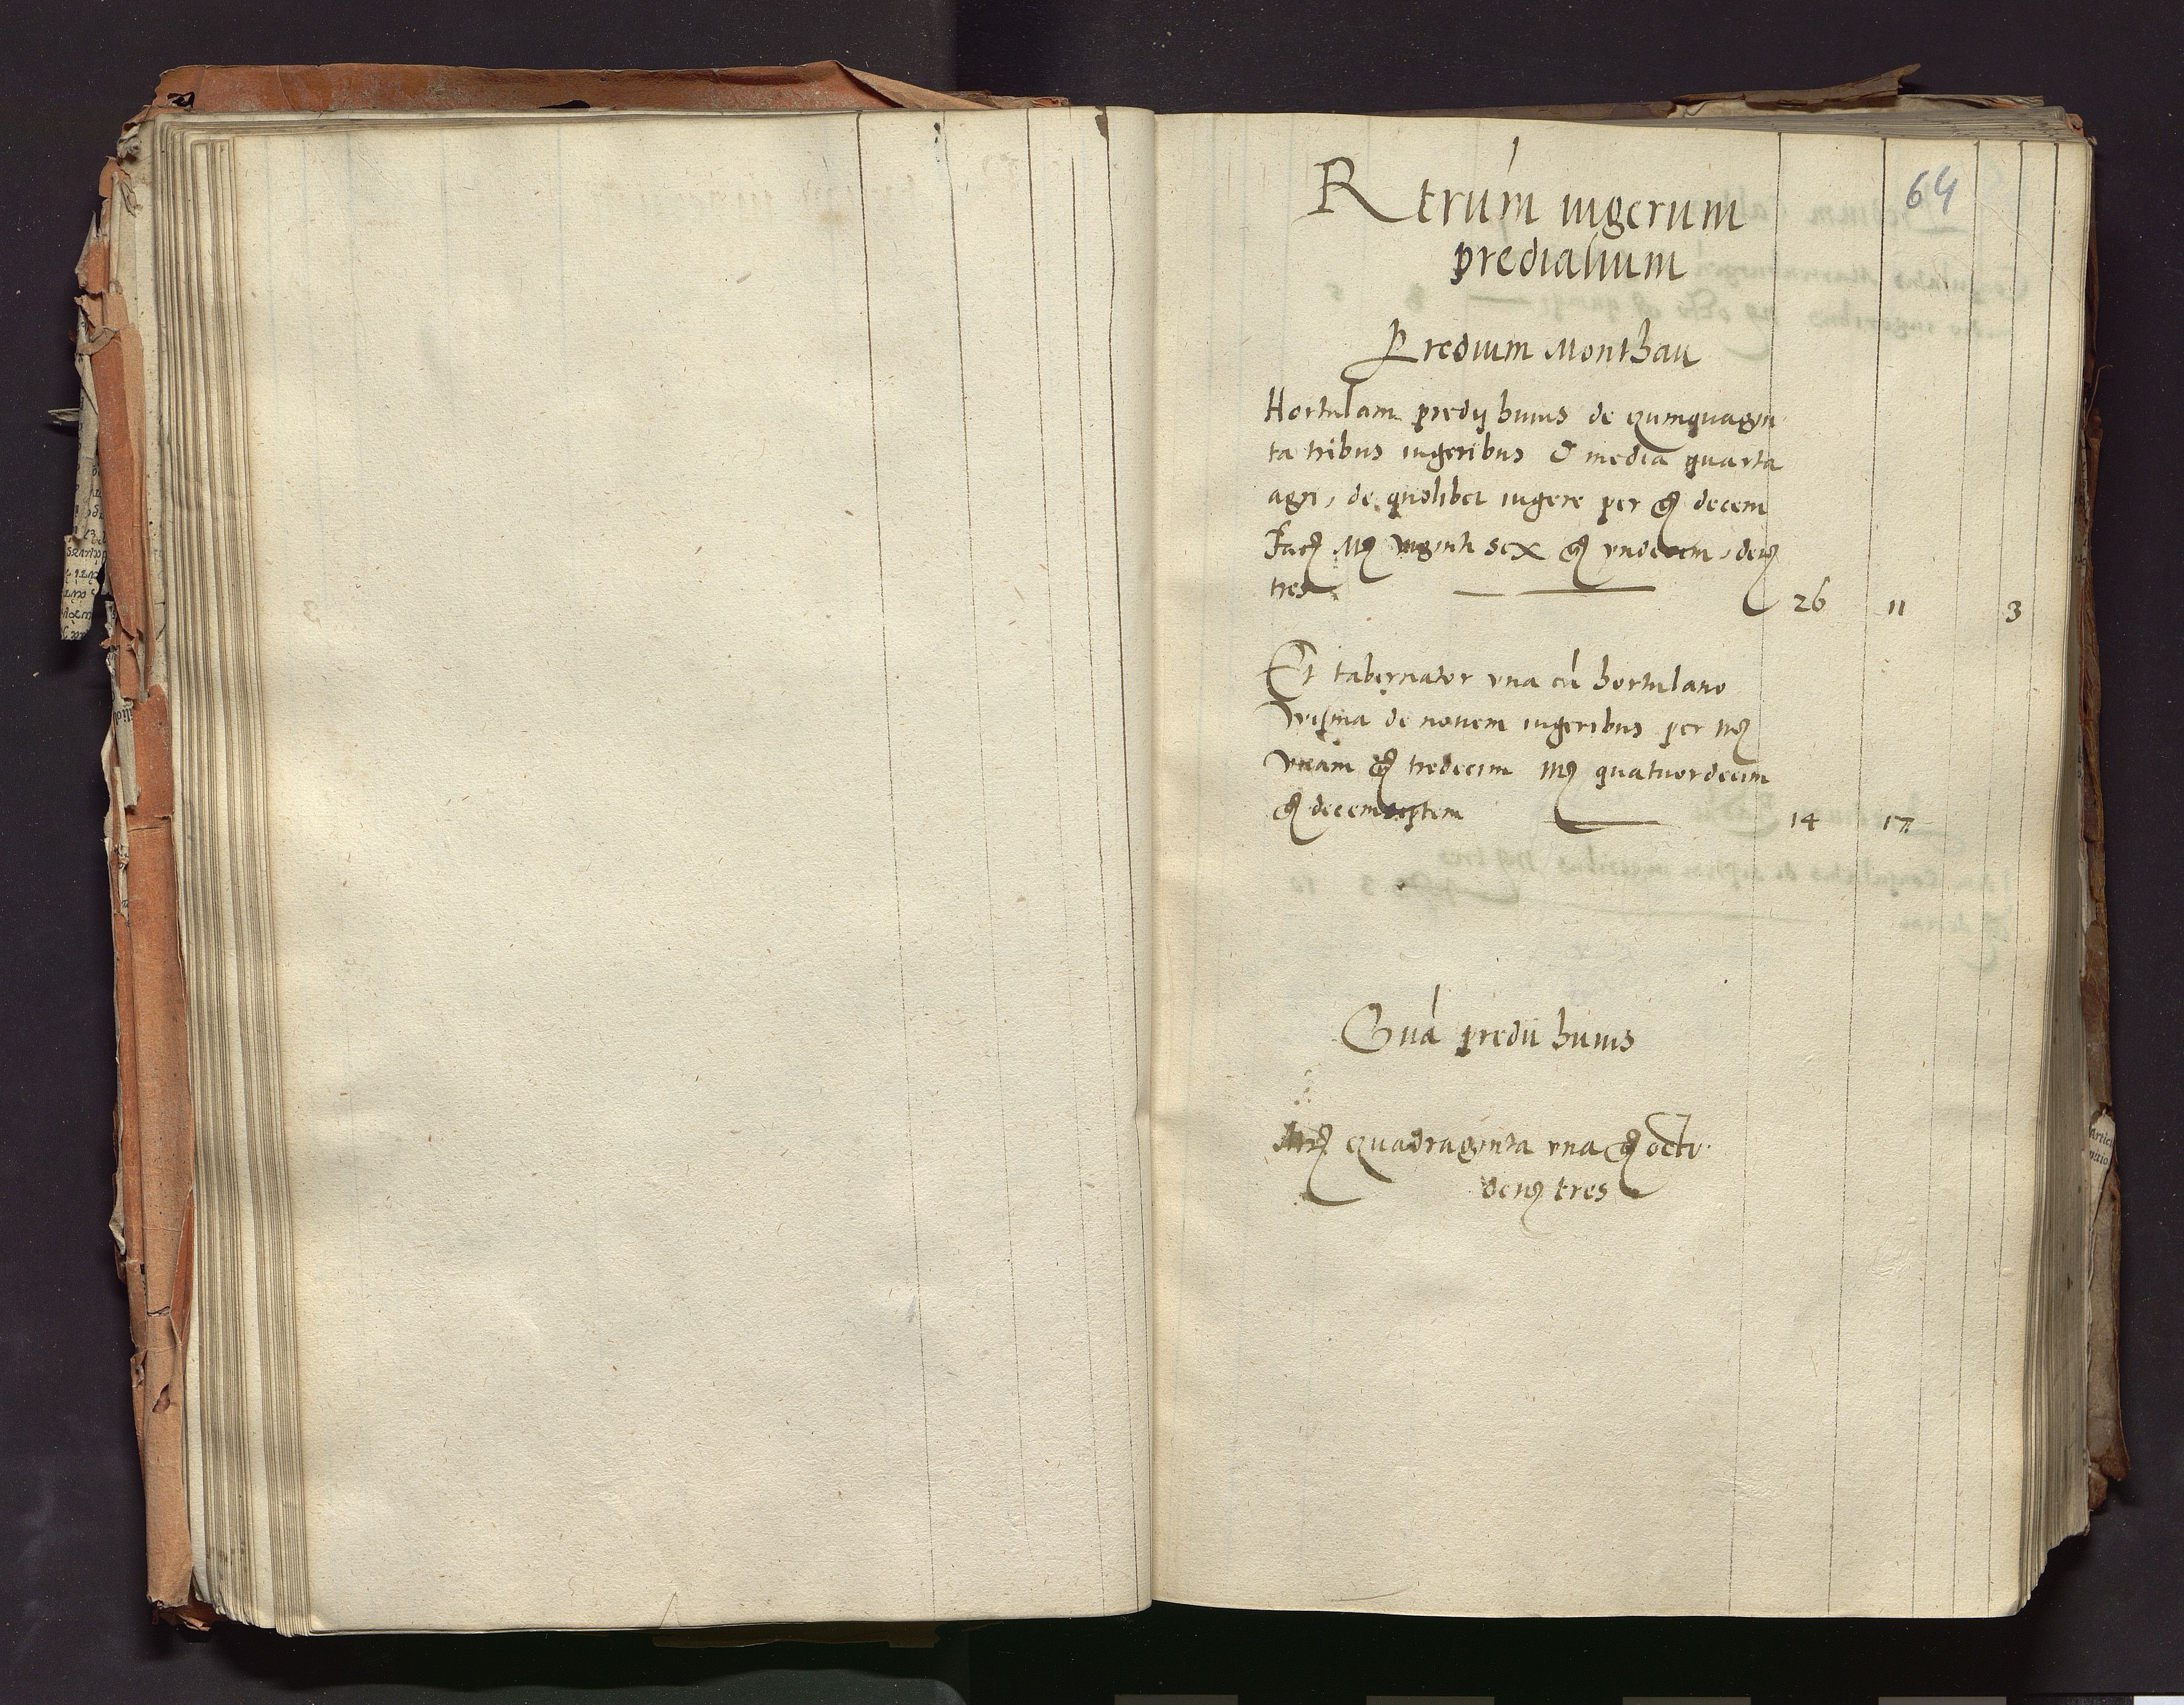 64
Rtrúm iugerum
predialium
Predium Monthau
Hortulani predij huius de quinquagin
ta tribus iugeribus & media quarta
agri, de quolibet iugere per g decem
Fac Mr viginti sex g vndecim, den
tres 26 11 3
Et tabernator vna cú hortulano
de nouem iugeribus per mr
vnam g tredecim mr quatuordecim
g decemseptem 14 17
predii huius
Mr quadraginta vna g octo
den tres